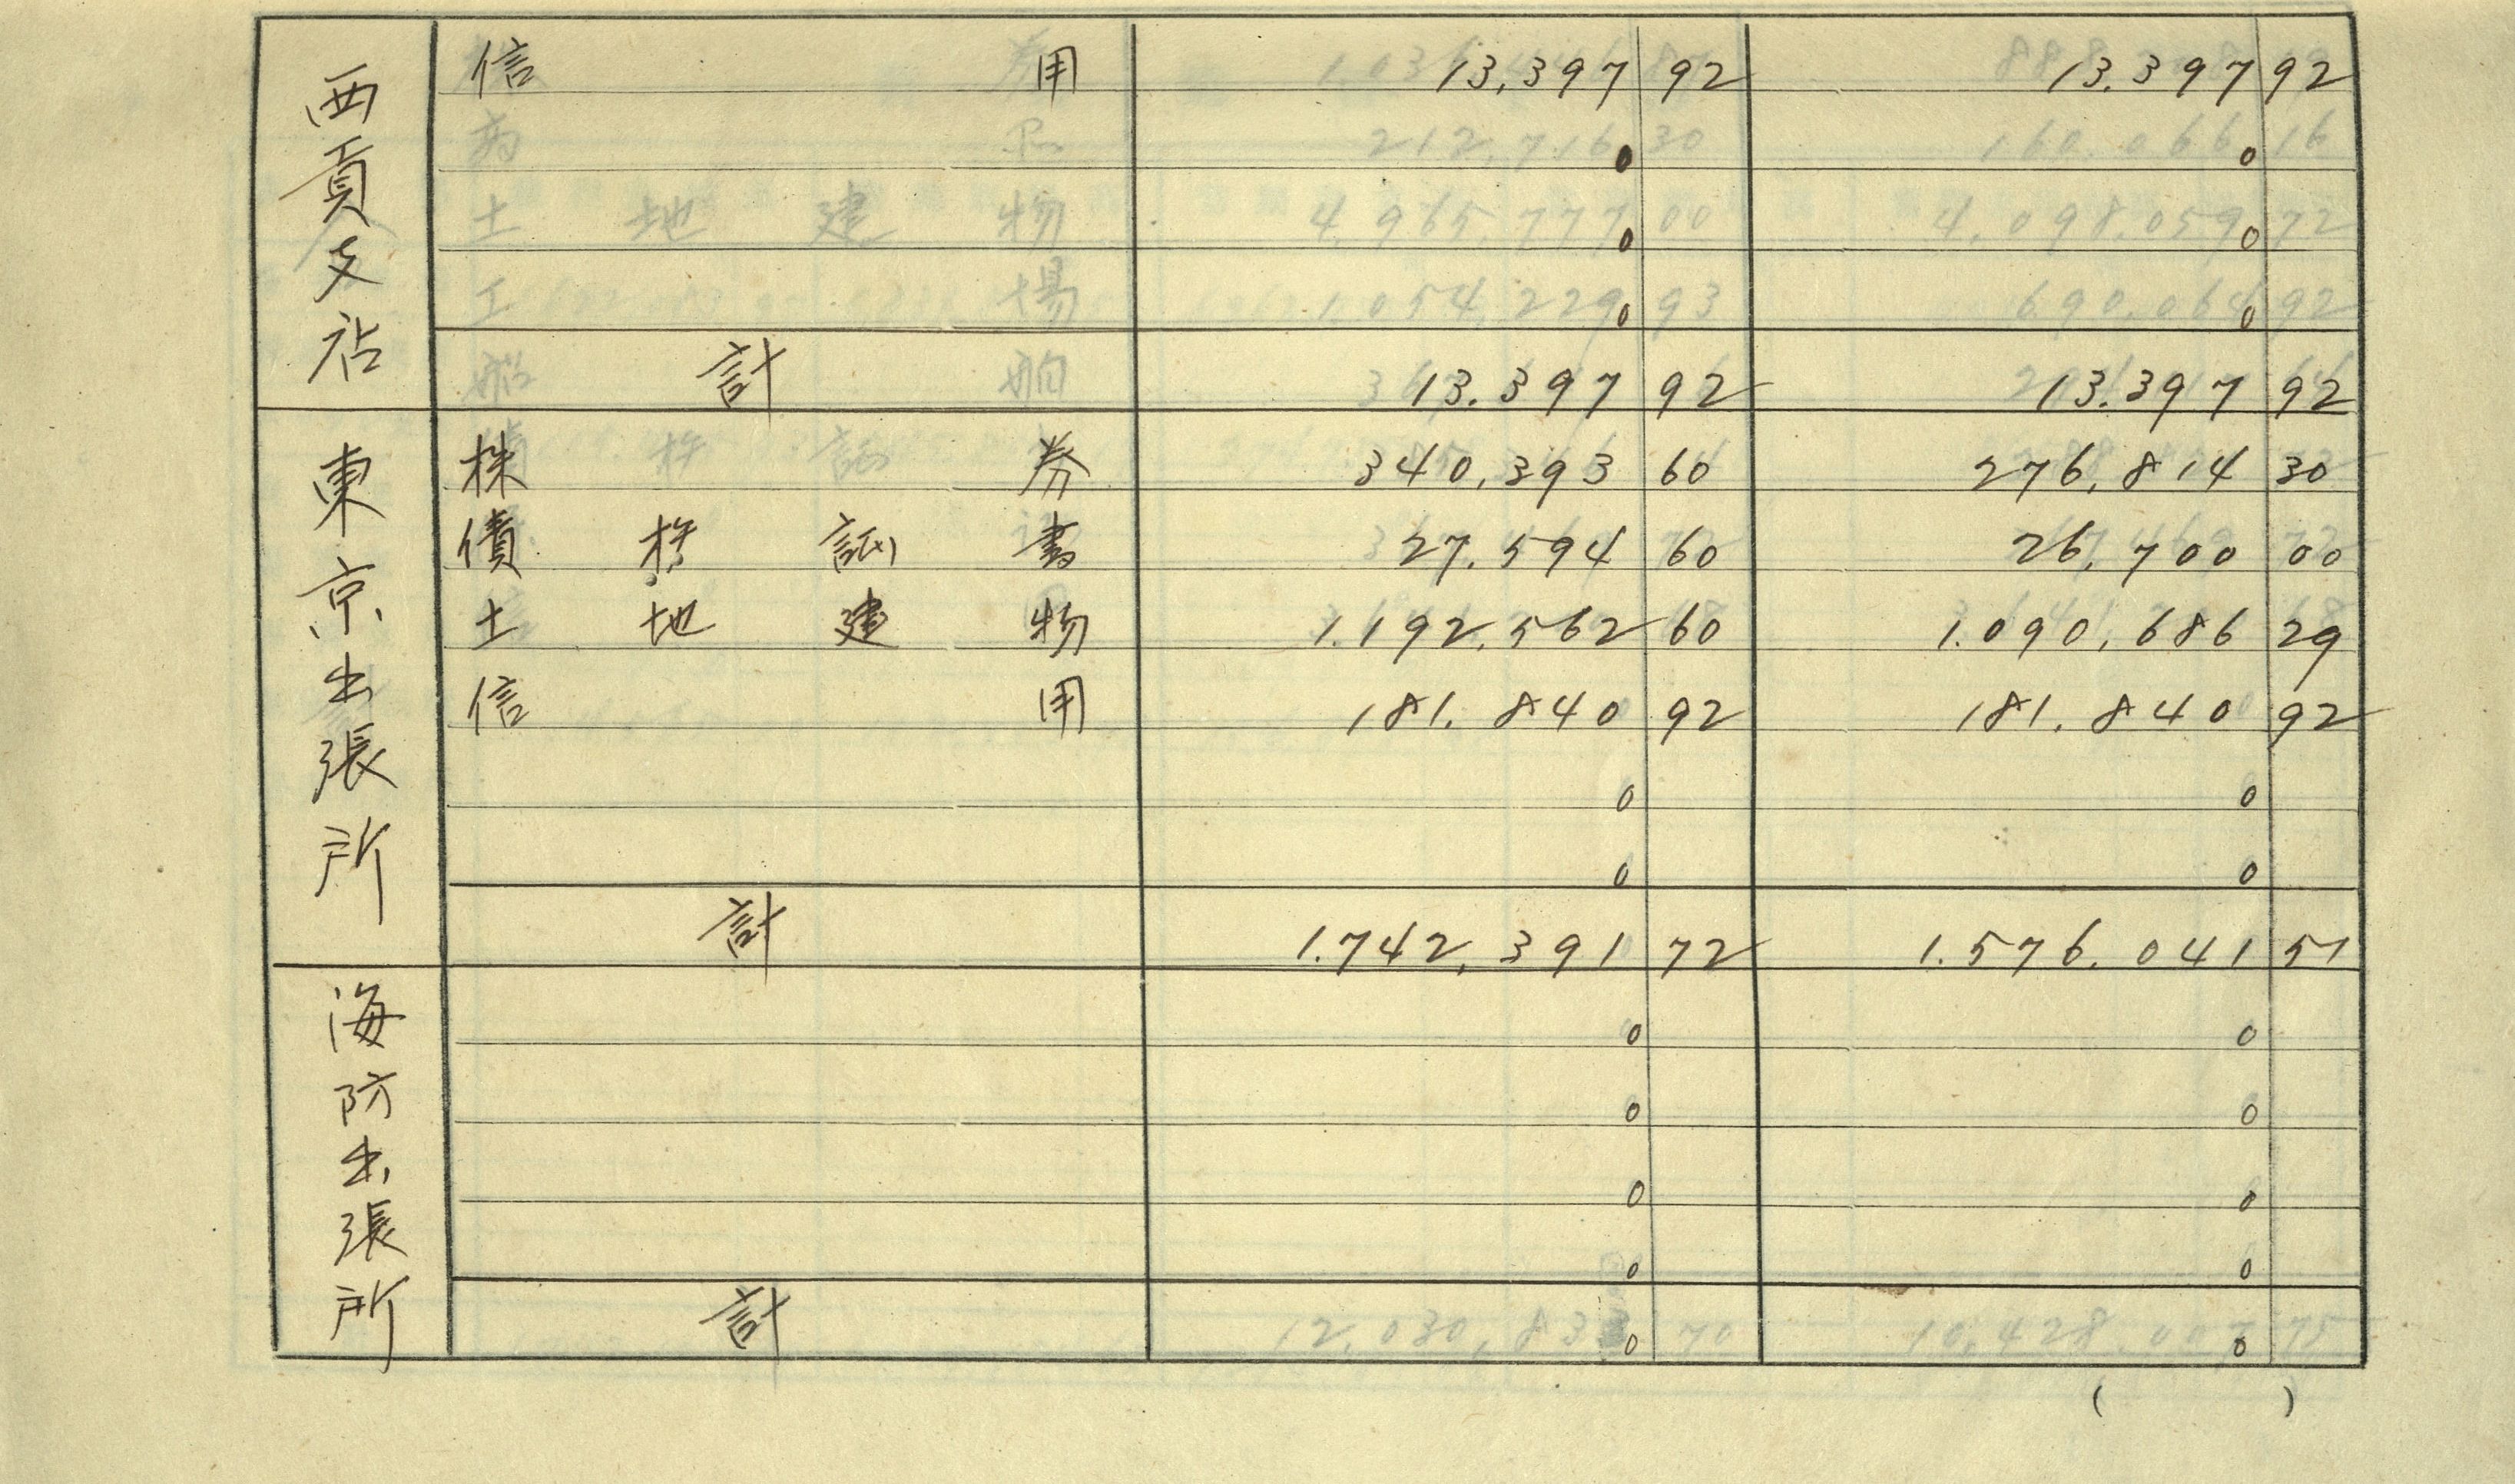 西貢支店
信用 13,397 92 13.397 92
0 0
0 0
0 0
計 13.397 92 13.397 92
東京出張所
株券 340,393 60 276,814 30
債権証書 27.594 60 26,700 00
土地建物 1.192,562 60 1.090,686 29
信用 181.840 92 181.840 92
0 0
0 0
計 1.742,391 72 1.576.041 51
海防出張所
0 0
0 0
0 0
0 0
計 0 0
( )